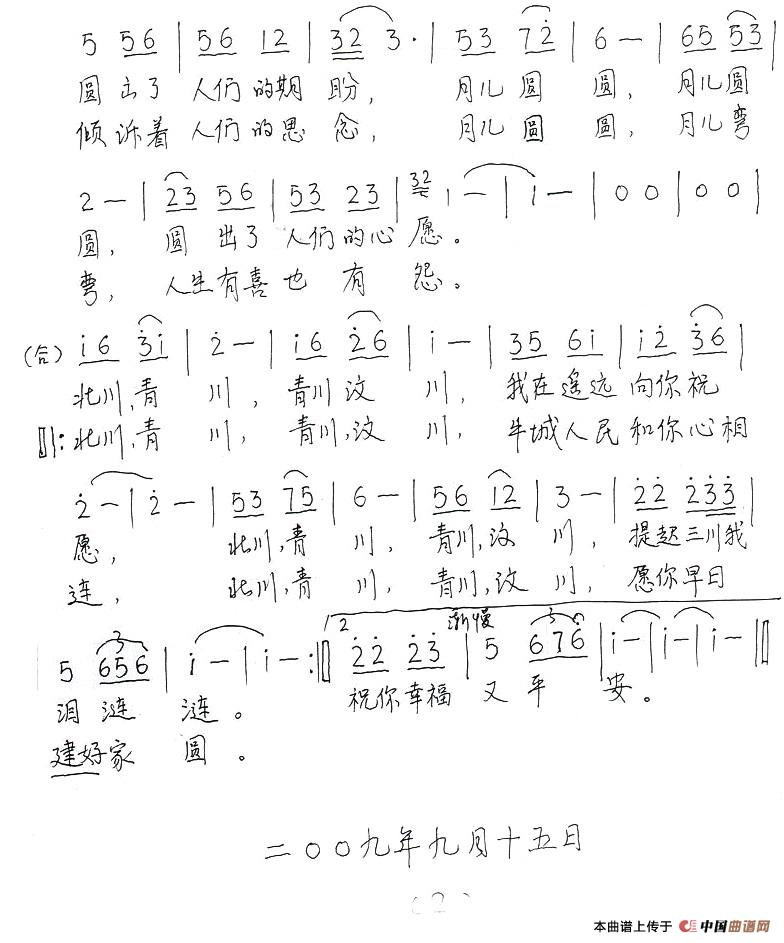 5 56 | 56 12 | 32 3· | 53 72̇ | 6 — | 65 53 |
圆 出了 人们 的期 盼， 月儿 圆 圆， 月儿圆
倾 诉着 人们 的思 念， 月儿 圆 圆， 月儿弯
2 — | 23 56 | 53 23 | 32 1 — | 1 — | 0 0 | 0 0 |
圆， 圆 出了 人们 的心 愿。
弯， 人生有喜 也 有 怨。
(合) i6 3̇i | 2̇ — | i6 2̇6 | i — | 35 6i | i2̇ 3̇6 |
北川，青 川， 青川 汶 川， 我在遥远 向你祝
‖: 北川，青 川， 青川，汶 川， 牛城人民 和你心相
2̇ — | 2̇ — | 53 75 | 6 — | 56 i2 | 3 — | 2̇2̇ 2̇3̇3̇ |
愿， 北川，青 川， 青川，汶 川， 提起三川我
连， 北川，青 川， 青川，汶 川， 愿你早日
渐慢
5 656 | i — | i — :‖ 2 2̇2̇ 2̇3̇ | 5 676 | i — | i — | i — ‖
泪 涟 涟。 祝你幸福 又 平 安。
建好家 圆。
二〇〇九年九月十五日
(2)
本曲谱上传于 中国曲谱网